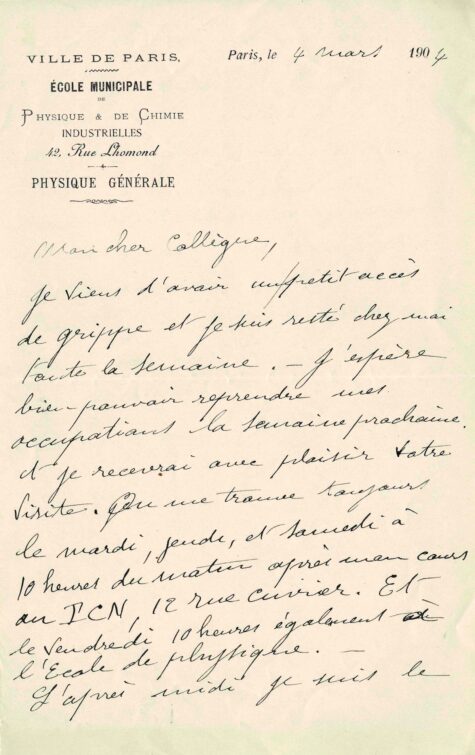 VILLE DE PARIS.
ÉCOLE MUNICIPALE
DE
PHYSIQUE & DE CHIMIE
INDUSTRIELLES
42, Rue Lhomond
PHYSIQUE GÉNÉRALE
Paris, le 4 mars 1904
Mon cher Collègue,
Je viens d'avoir un petit accès
de grippe et je suis resté chez moi
toute la semaine. — J'espère
bien pouvoir reprendre mes
occupations la semaine prochaine.
et je recevrai avec plaisir votre
visite. On me trouve toujours
le mardi, jeudi, et samedi à
10 heures du matin après mon cours
au PCN, 12 rue cuvier. Et
le vendredi 10 heures également à
l'Ecole de physique. —
L'après midi je suis le